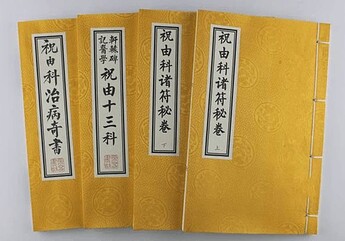 祝由科治病奇書
軒轅碑
記醫學
祝由十三科
祝由科诸符秘卷
下
祝由科诸符秘卷
上